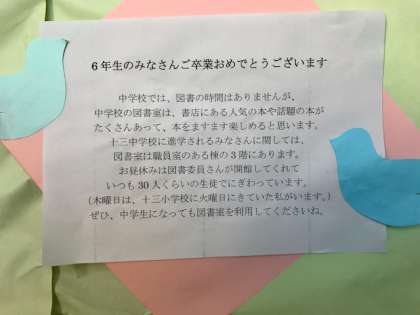 6年生のみなさんご卒業おめでとうございます
中学校では、図書の時間はありませんが、
中学校の図書室は、書店にある人気の本や話題の本が
たくさんあって、本をますます楽しめると思います。
十三中学校に進学されるみなさんに関しては、
図書室は職員室のある棟の3階にあります。
お昼休みは図書委員さんが開館してくれて
いつも30人くらいの生徒でにぎわっています。
(木曜日は、十三小学校に火曜日にきていた私がいます。)
ぜひ、中学生になっても図書室を利用してくださいね。